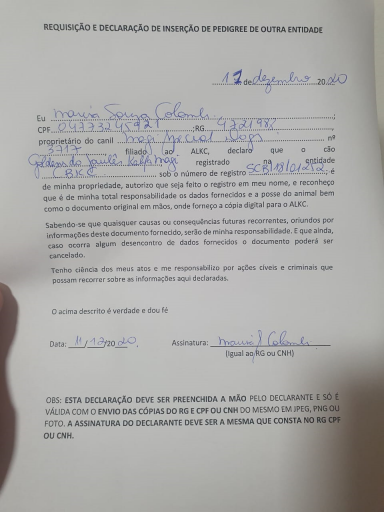 REQUISIÇÃO E DECLARAÇÃO DE INSERÇÃO DE PEDIGREE DE OUTRA ENTIDADE
11 de dezembro 2020
Eu Maura Souza Colomb ;
CPF ;RG ,
proprietário do canil Magi Special Dogs nº
3717 filiado ao ALKC, declaro que o cão
registrado na entidade
CBKC sob o número de registro SCB/18/01252; é
de minha propriedade, autorizo que seja feito o registro em meu nome, e reconheço
que é de minha total responsabilidade os dados fornecidos e a posse do animal bem
como o documento original em mãos, onde forneço a cópia digital para o ALKC.
Sabendo-se que quaisquer causas ou consequências futuras recorrentes, oriundos por
informações deste documento fornecido, serão de minha responsabilidade. E que ainda,
caso ocorra algum desencontro de dados fornecidos o documento poderá ser
cancelado.
Tenho ciência dos meus atos e me responsabilizo por ações cíveis e criminais que
possam recorrer sobre as informações aqui declaradas.
O acima descrito é verdade e dou fé
Data: 11/12/2020. Assinatura:
(Igual ao RG ou CNH)
OBS: ESTA DECLARAÇÃO DEVE SER PREENCHIDA A MÃO PELO DECLARANTE E SÓ É
VÁLIDA COM O ENVIO DAS CÓPIAS DO RG E CPF OU CNH DO MESMO EM JPEG, PNG OU
FOTO. A ASSINATURA DO DECLARANTE DEVE SER A MESMA QUE CONSTA NO RG CPF
OU CNH.